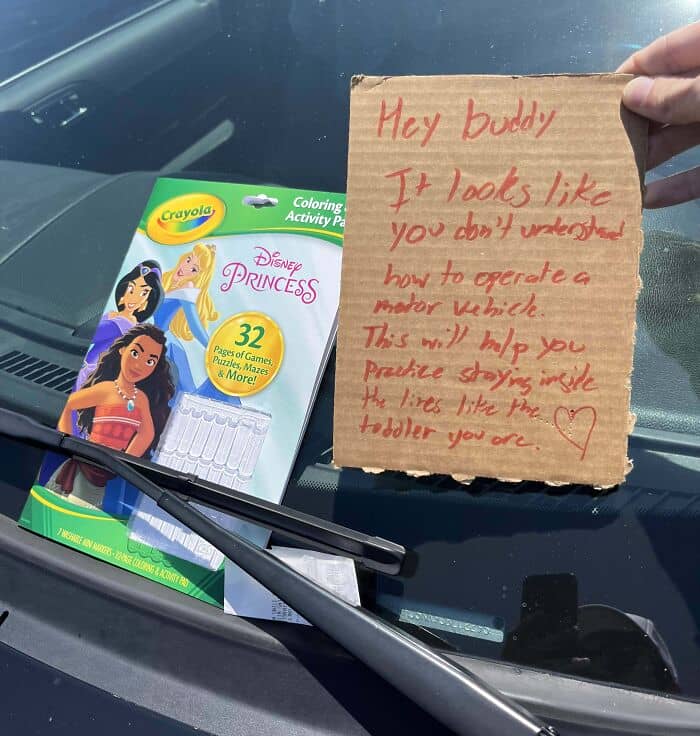 Crayola
Coloring
Activity Pa
Disney
PRINCESS
32
Pages of Games,
Puzzles, Mazes
& More!
7 WASHABLE MINI MARKERS • 32-PAGE COLORING & ACTIVITY PAD
Hey buddy
It looks like
you don't understand
how to operate a
motor vehicle.
This will help you
practice staying inside
the lines like the
toddler you are.